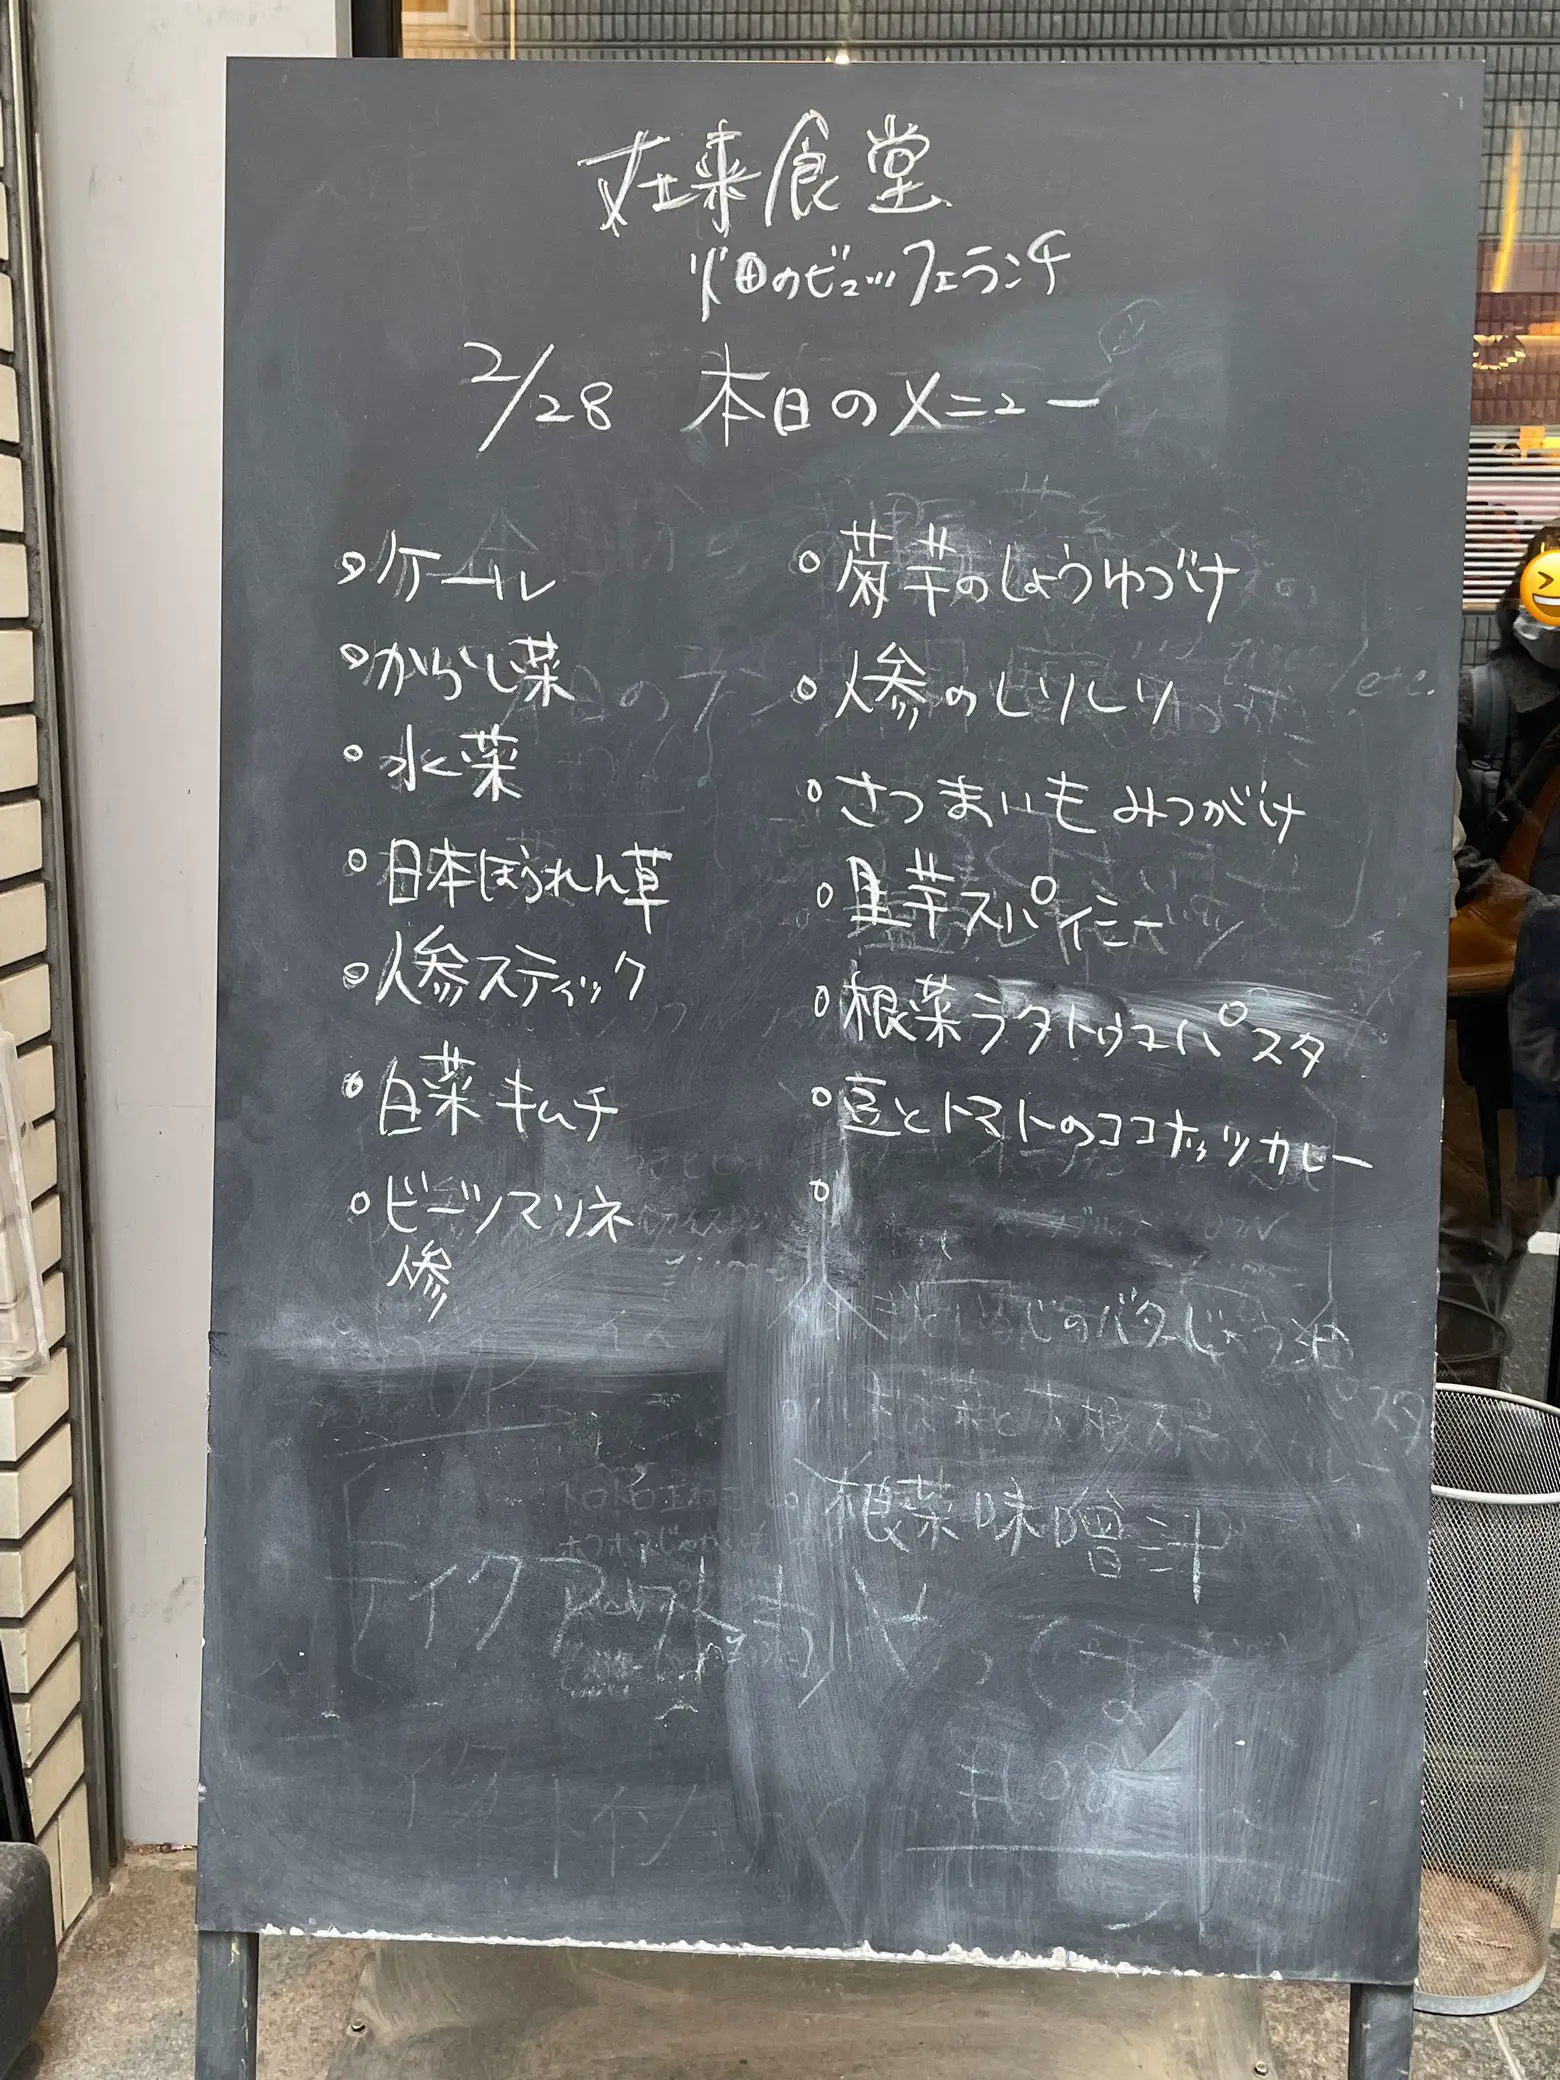 在来食堂
畑のビュッフェランチ
2/28 本日のメニュー
ケール
からし菜
水菜
日本ほうれん草
人参スティック
白菜キムチ
ビーツマリネ
人参
菊芋のしょうゆづけ
人参のしりしり
さつまいもみつがけ
里芋スパイシー
根菜ラタトゥユパスタ
豆とトマトのココナッツカレー
根菜味噌汁
テイクアウト